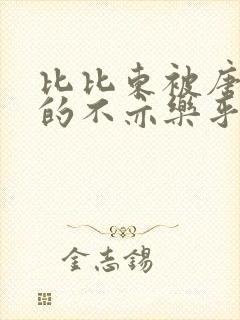 比比东被唐
的不亦乐乎
金志锡